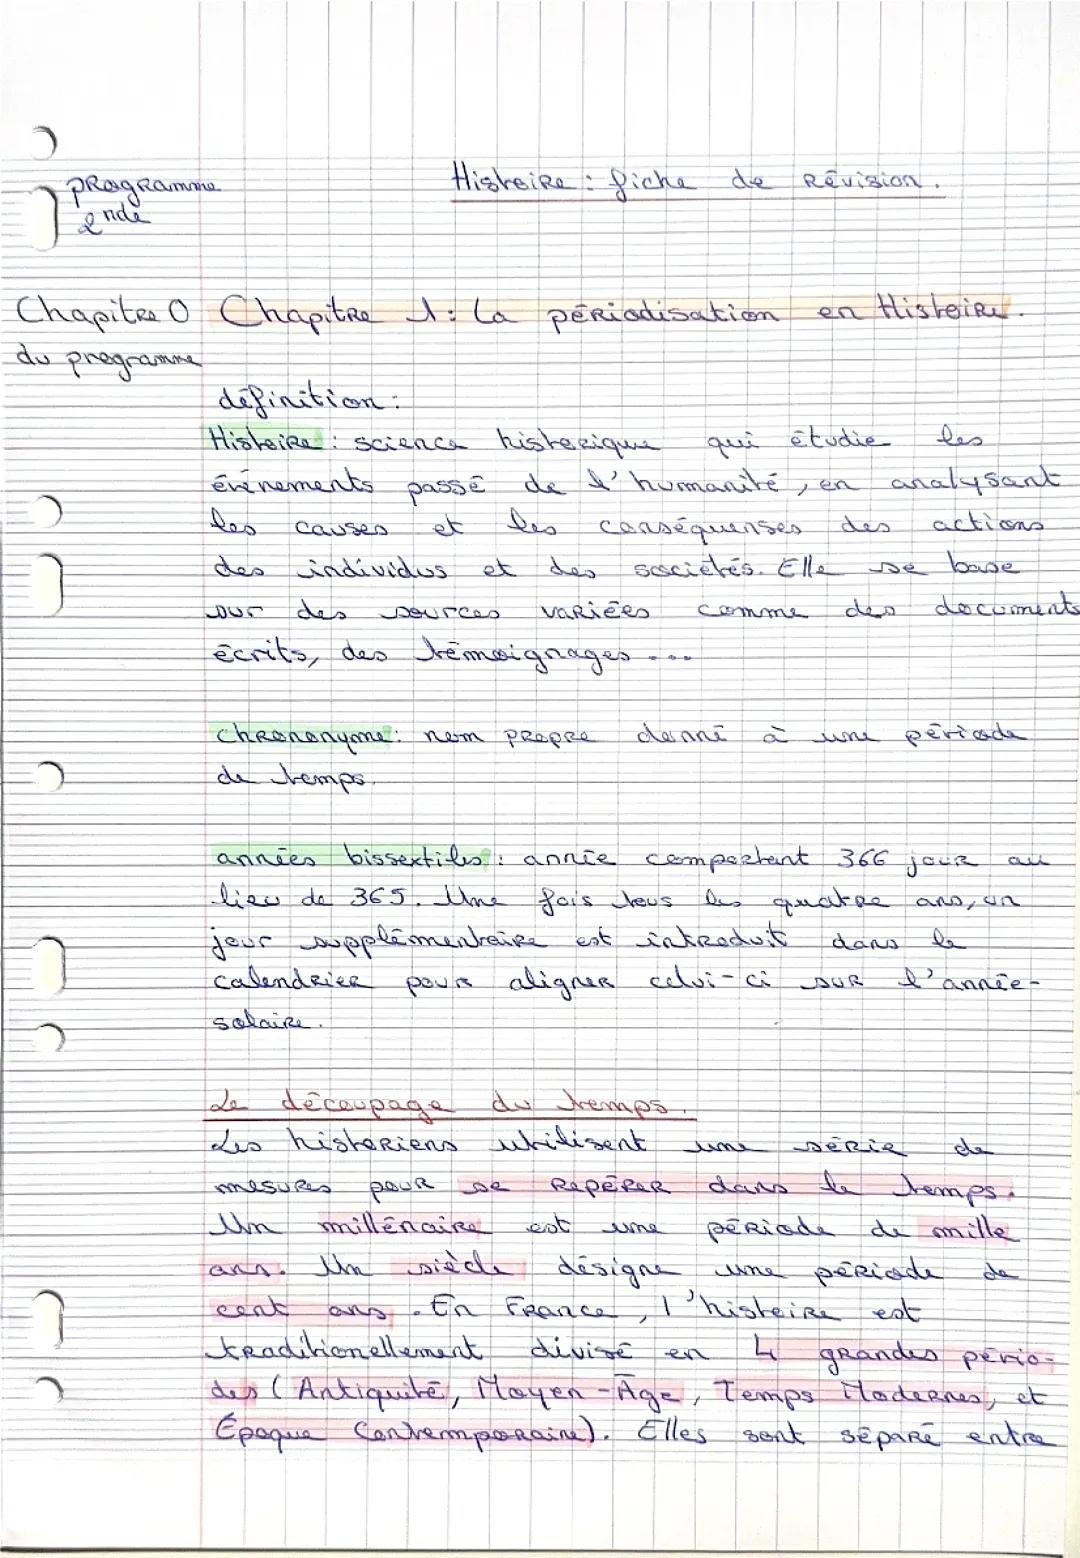 Histoire : fiche de Révision.
programme
2nde
Chapitre 0 Chapitre 1 : La périodisation en Histoire.
du programme
définition :
Histoire : science historique qui étudie les
événements passé de l'humanité, en analysant
les causes et les conséquenses des actions
des individus et des sociétés. Elle se base
sur des sources variées comme des documents
écrits, des témoignages ...
chrononyme : nom propre donné à une période
de temps.
années bissextiles : année comportant 366 jour au
lieu de 365. Une fois tous les quatre ans, un
jour supplémentaire est introduit dans le
calendrier pour aligner celui-ci sur l'année-
solaire.
Le découpage du temps.
Les historiens utilisent une série de
mesures pour se repérer dans le temps.
Un millénaire est une période de mille
ans. Un siècle désigne une période de
cent ans. En France, l'histoire est
traditionellement divisé en 4 grandes pério-
des (Antiquité, Moyen-Âge, Temps Modernes, et
Époque Contemporaine). Elles sont séparé entre